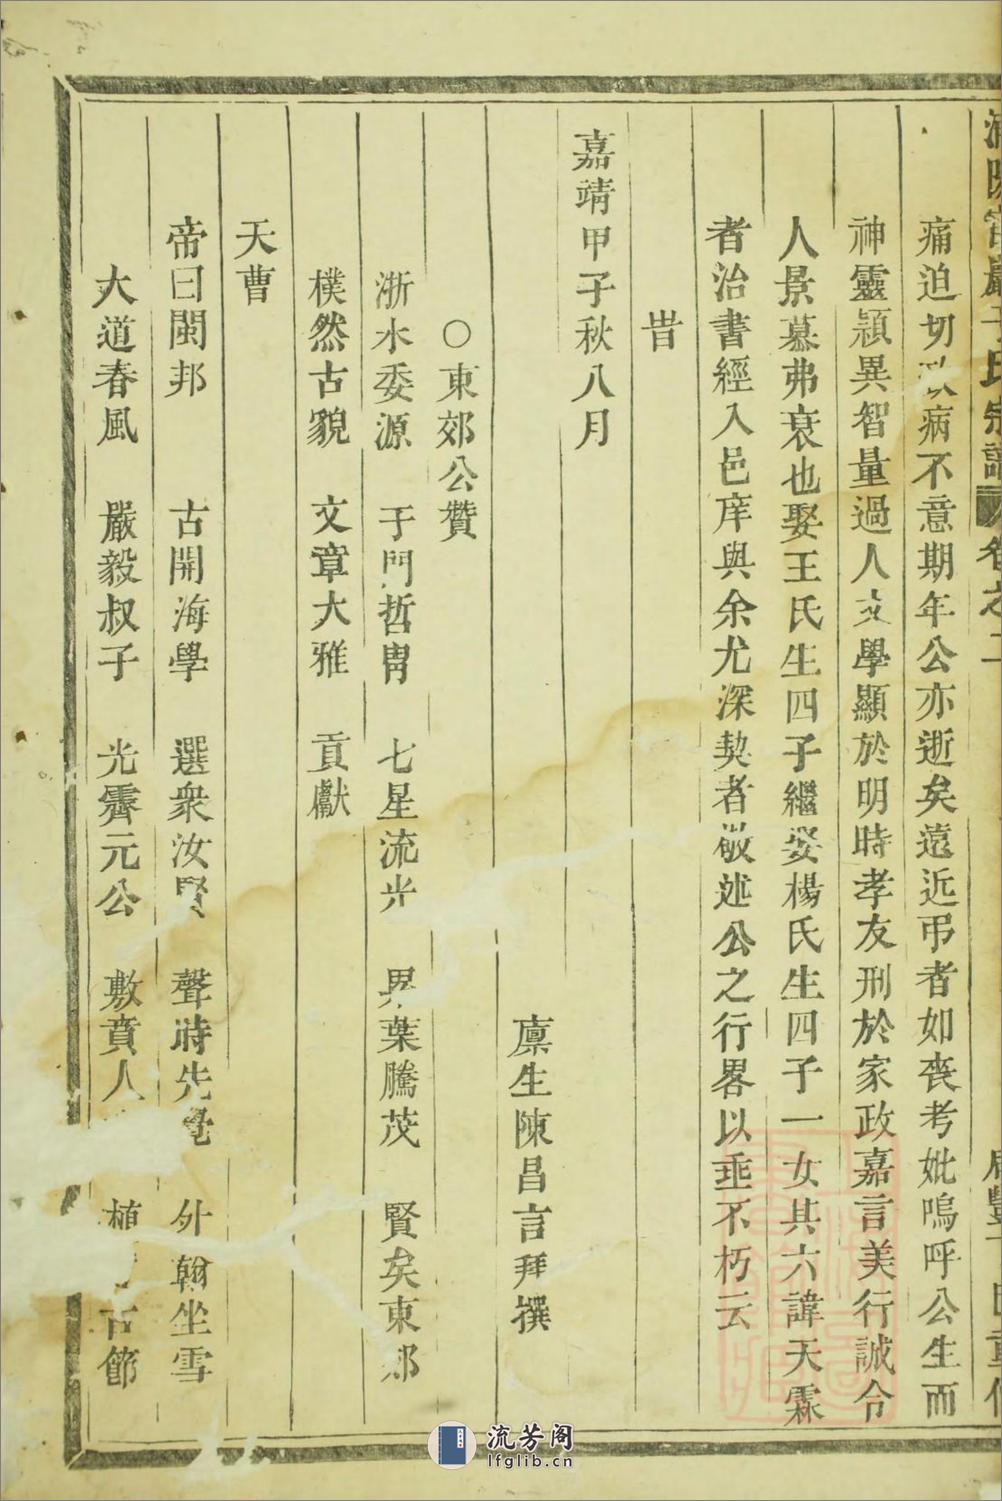 氏宗譜 卷之二
痛迫切病不意期年公亦逝矣遠近弔者如喪考妣嗚呼公生而
神靈穎異智量過人文學顯於明時孝友刑於家政嘉言美行誠令
人景慕弗衰也娶王氏生四子繼娶楊氏生四子一女其六諱天霖
者治書經入邑庠與余尤深契者敬述公之行畧以垂不朽云
旹
嘉靖甲子秋八月
廪生陳昌言拜撰
○東郊公贊
浙水委源 于門哲冑 七星流光 葉騰茂 賢矣東郊
樸然古貌 文章大雅 貢獻
天曹
帝曰閩邦 古開海學 選衆汝賢 聲時先覺 外翰坐雪
大道春風 嚴毅叔子 光霽元公 敷賁人 植 古節
流芳阁
lfglib.cn